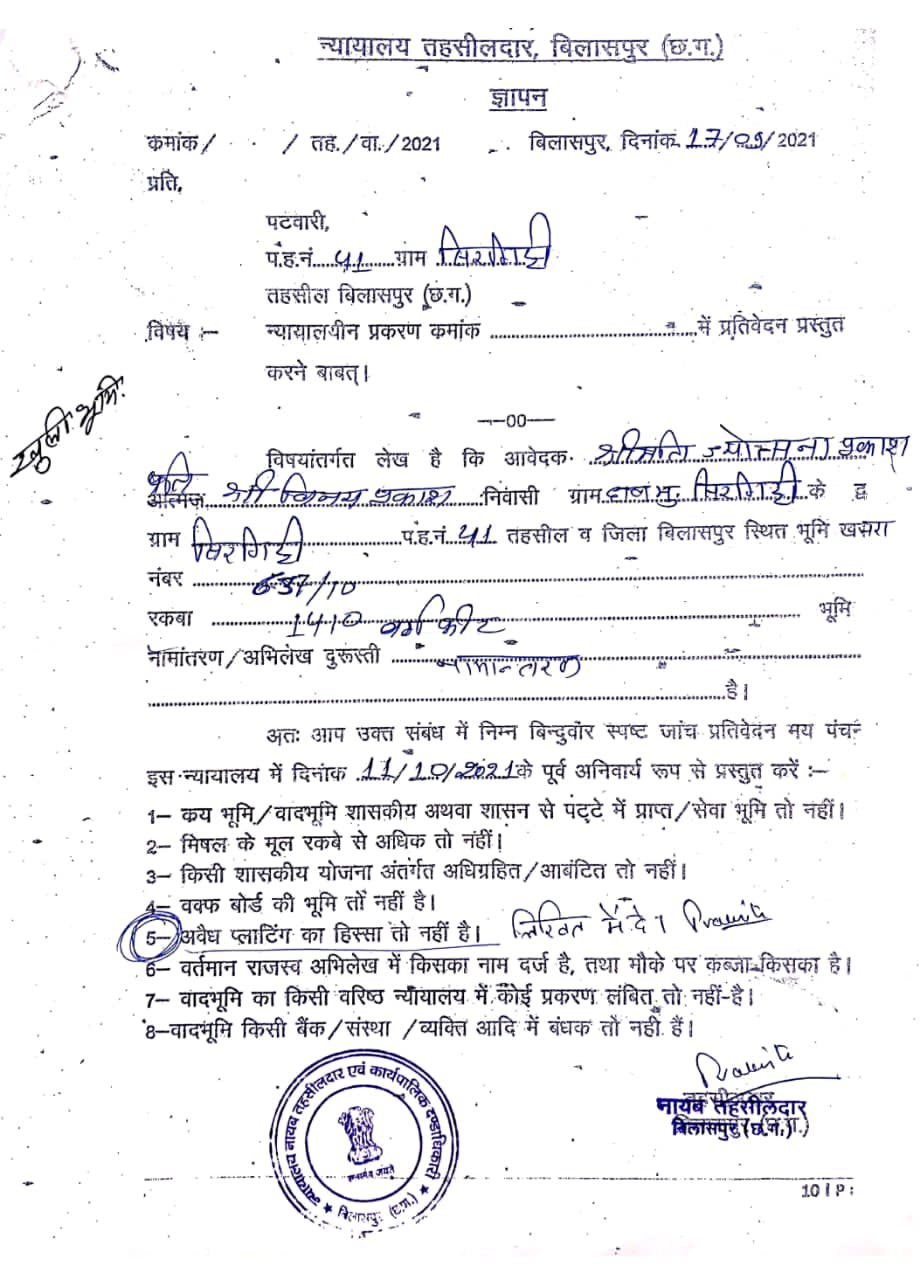 न्यायालय तहसीलदार, बिलासपुर (छ.ग.)
ज्ञापन
कमांक/ / तह./वा./2021 बिलासपुर, दिनांक 17/09/2021
प्रति,
पटवारी,
प.ह.नं.....41........ग्राम सिरगिट्टी
तहसील बिलासपुर (छ.ग.)
विषय :– न्यायालयीन प्रकरण कमांक ........................................में प्रतिवेदन प्रस्तुत
करने बाबत्।
खुली भूमि.
—00—
विषयांतर्गत लेख है कि आवेदक श्रीमति ज्योत्सना प्रकाश
पति
आत्मज श्री विनय प्रकाश निवासी ग्राम सिरगिट्टी के द्व
ग्राम सिरगिट्टी प.ह.नं. 41 तहसील व जिला बिलासपुर स्थित भूमि खसरा
नंबर 637/10
रकबा 1410 वर्ग फीट भूमि
नामांतरण/अभिलेख दुरूस्ती नामान्तरण
है।
अतः आप उक्त संबंध में निम्न बिन्दुवार स्पष्ट जांच प्रतिवेदन मय पंचन
इस न्यायालय में दिनांक 11/10/2021 के पूर्व अनिवार्य रूप से प्रस्तुत करें :–
1– कय भूमि/वादभूमि शासकीय अथवा शासन से पट्टे में प्राप्त/सेवा भूमि तो नहीं।
2– मिषल के मूल रकबे से अधिक तो नहीं।
3– किसी शासकीय योजना अंतर्गत अधिग्रहित/आबंटित तो नहीं।
4– वक्फ बोर्ड की भूमि तो नहीं है।
5– अवैध प्लाटिंग का हिस्सा तो नहीं है। लिखित में दे।
6– वर्तमान राजस्व अभिलेख में किसका नाम दर्ज है, तथा मौके पर कब्जा किसका है।
7– वादभूमि का किसी वरिष्ठ न्यायालय में कोई प्रकरण लंबित तो नहीं है।
8–वादभूमि किसी बैंक/संस्था /व्यक्ति आदि में बंधक तो नही हैं।
नायब तहसीलदार
बिलासपुर (छ.ग.)
न्यायालय नायब तहसीलदार एवं कार्यपालिक दण्डाधिकारी
सत्यमेव जयते
बिलासपुर (छ.ग.)
10/P: